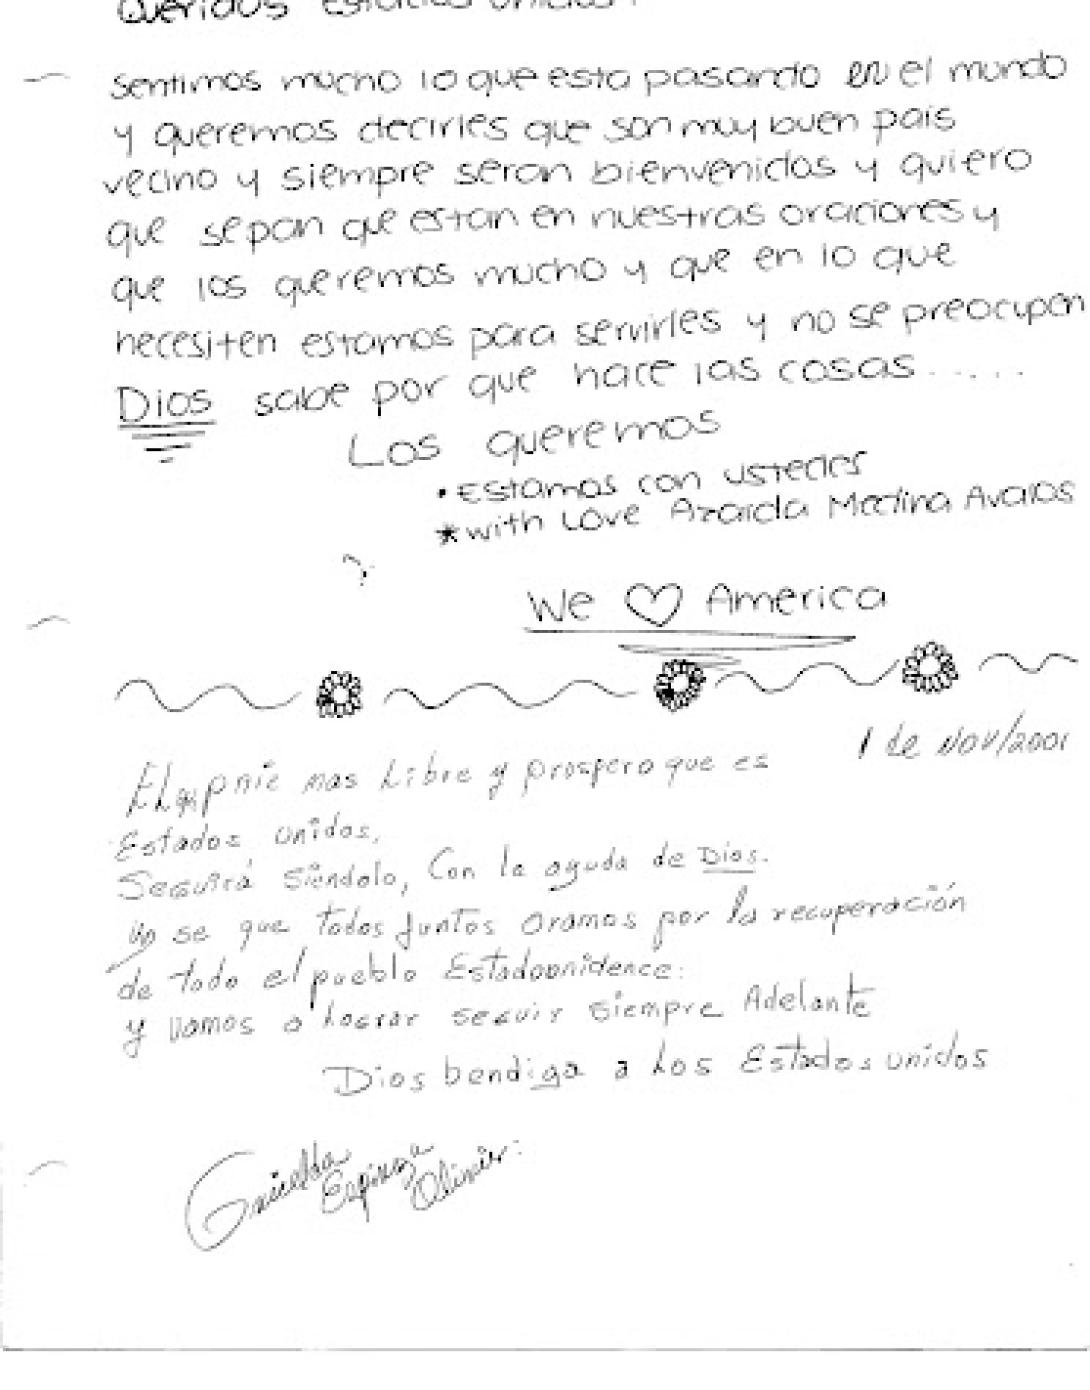 Queridos Estados Unidos:
Sentimos mucho lo que esta pasando en el mundo
y queremos decirles que son muy buen pais
vecino y siempre seran bienvenidos y quiero
que sepan que estan en nuestras oraciones y
que los queremos mucho y que en lo que
necesiten estamos para servirles y no se preocupen
Dios sabe por que hace las cosas.....
Los queremos
• Estamos con ustedes
* with Love Azaida Medina Avalos
We ♡ America
1 de Nov/2001
mas Libre y prospero que es
Estados unidos.
Seguirá Siendolo, Con la ayuda de Dios.
se que todos juntos oramos por la recuperación
de todo el pueblo Estadounidence:
y vamos a Lograr seguir siempre Adelante
Dios bendiga a Los Estados unidos
Espinoza